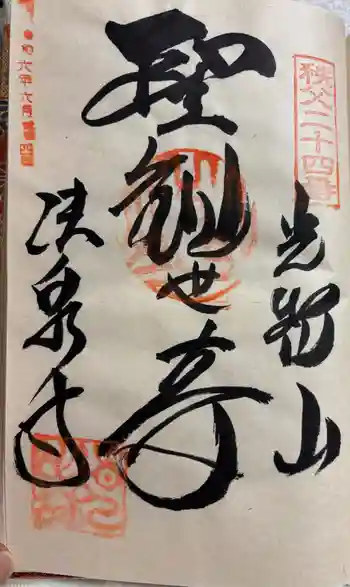 秩父二十四番
光智山
聖観世音
法泉寺
令和六年六月